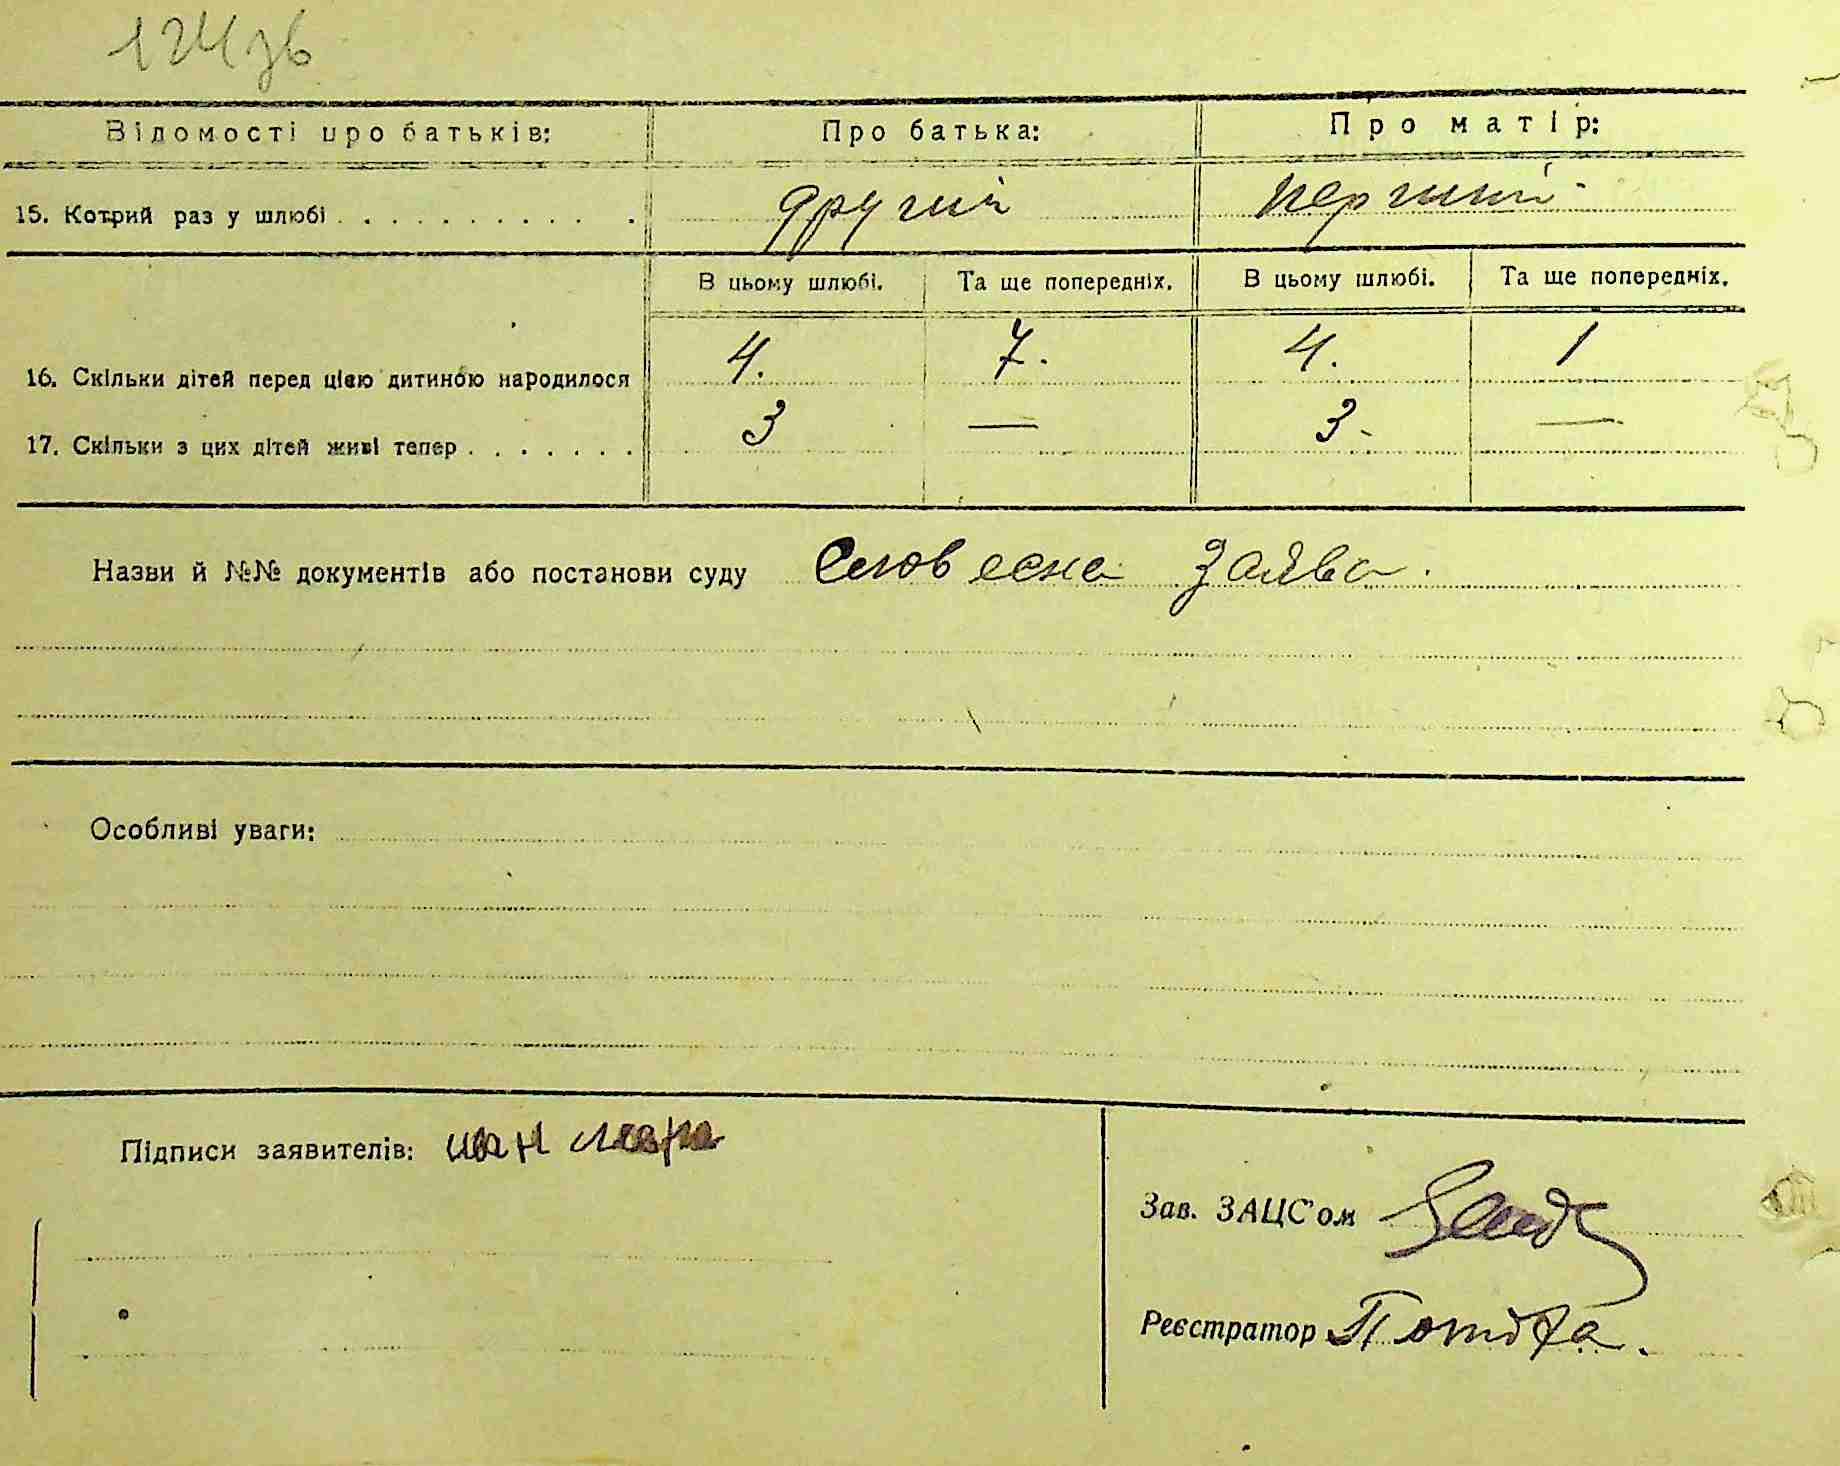 124зв
Відомості про батьків: Про батька: Про матір:
15. Котрий раз у шлюбі . . . . . . . . . . другий перший
В цьому шлюбі. Та ще попередніх. В цьому шлюбі. Та ще попередніх.
16. Скільки дітей перед цією дитиною народилося 4. 7. 4. 1
17. Скільки з цих дітей живі тепер . . . . . . . 3 — 3. —
Назви й №№ документів або постанови суду Словесна заява.
Особливі уваги:
Підписи заявителів: иван
Зав. ЗАЦС'ом
Реєстратор